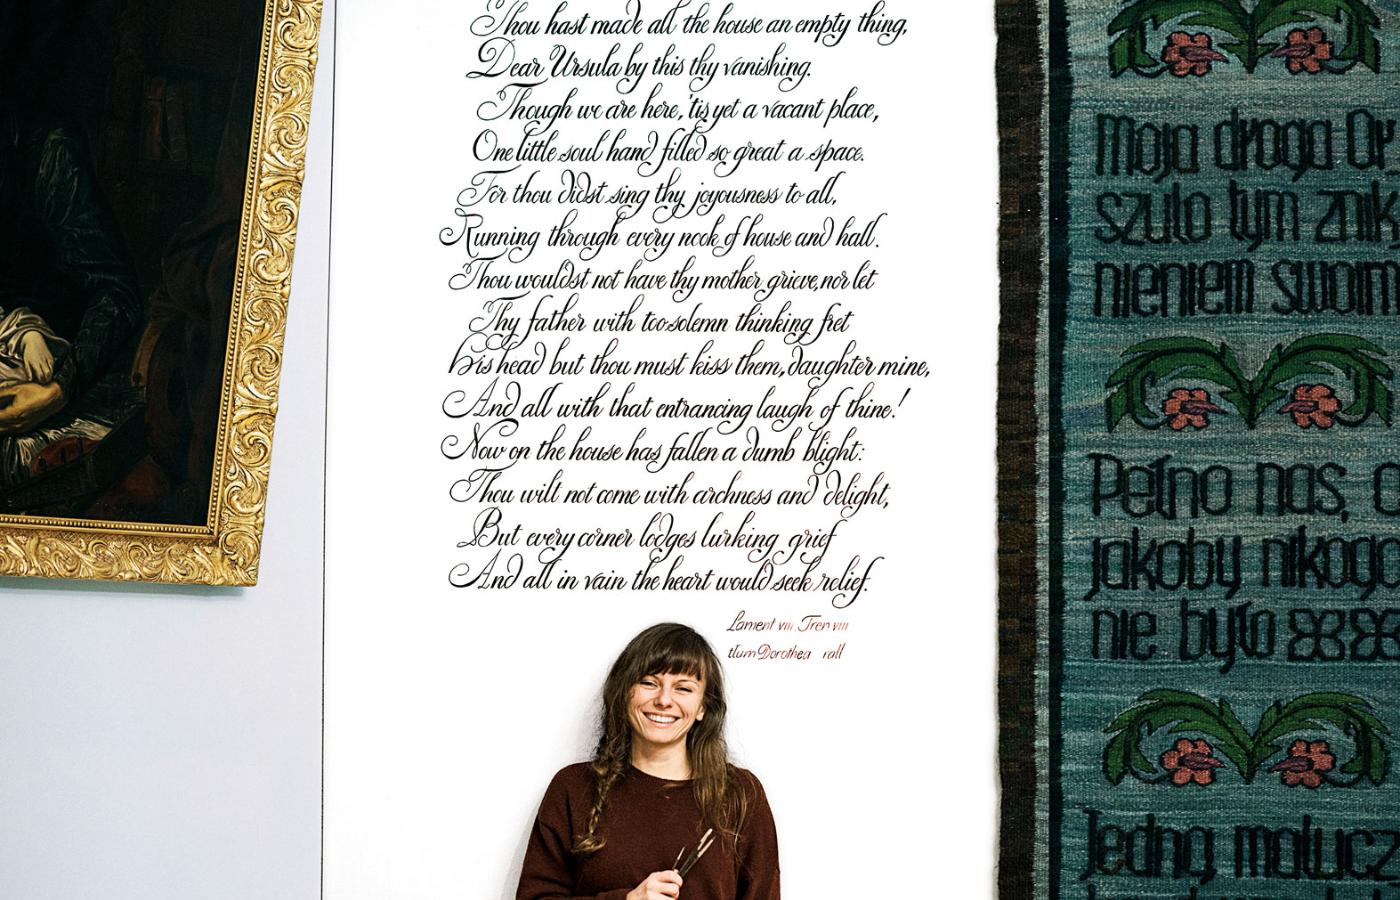 Thou hast made all the house an empty thing,
Dear Ursula by this thy vanishing.
Though we are here, 'tis yet a vacant place,
One little soul had filled so great a space.
For thou didst sing thy joyousness to all,
Running through every nook of house and hall.
Thou wouldst not have thy mother grieve, nor let
Thy father with too solemn thinking fret
His head but thou must kiss them, daughter mine,
And all with that entrancing laugh of thine!
Now on the house has fallen a dumb blight:
Thou wilt not come with archness and delight,
But every corner lodges lurking grief
And all in vain the heart would seek relief.
Lament VIII. Tren VIII
tłum Dorothea rall
Moja droga Or
szulo tym znik
nieniem swoim
Pełno nas, a
jakoby nikogo
nie było
Jedną malucz